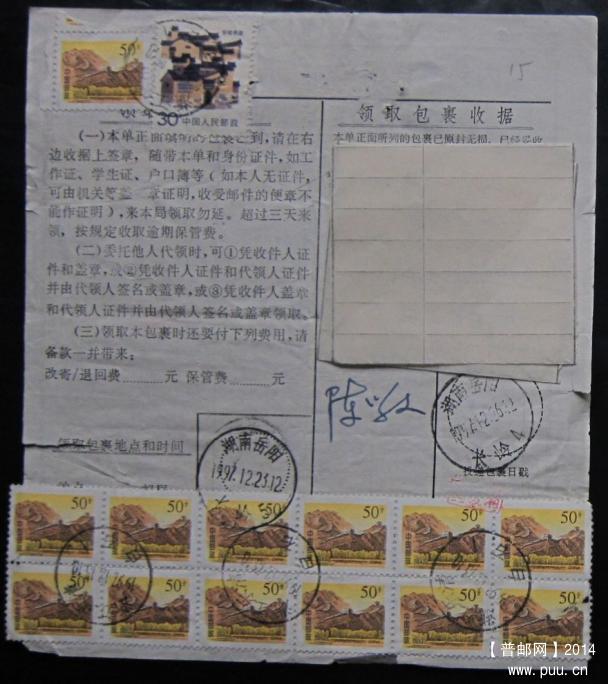 50分
30 中国人民邮政
15
领取包裹收据
本单正面所列的包裹已原封无损,已经妥收
(一)本单正面 的包裹已到,请在右
边收据上签章,随带本单和身份证件,如工
作证、学生证、户口簿等(如本人无证件,
可由机关等盖 章证明,收受邮件的便章不
能作证明),来本局领取勿延。超过三天来
领,按规定收取逾期保管费。
(二)委托他人代领时,可①凭收件人证
件和盖章,或②凭收件人证件和代领人证件
并由代领人签名或盖章,或③凭收件人盖章
和代领人证件并由代领人签名或盖章领取。
(三)领取本包裹时还要付下列费用,请
备款一并带来:
改寄/退回费 元 保管费 元
湖南岳阳
长岭A
领取包裹地点和时间
湖南岳阳
1997.12.23.12
投递包裹日戳
50分 50分 50分 50分 50分 50分
50分 50分 50分 50分 50分 50分
【普邮网】2014
www.puu.cn